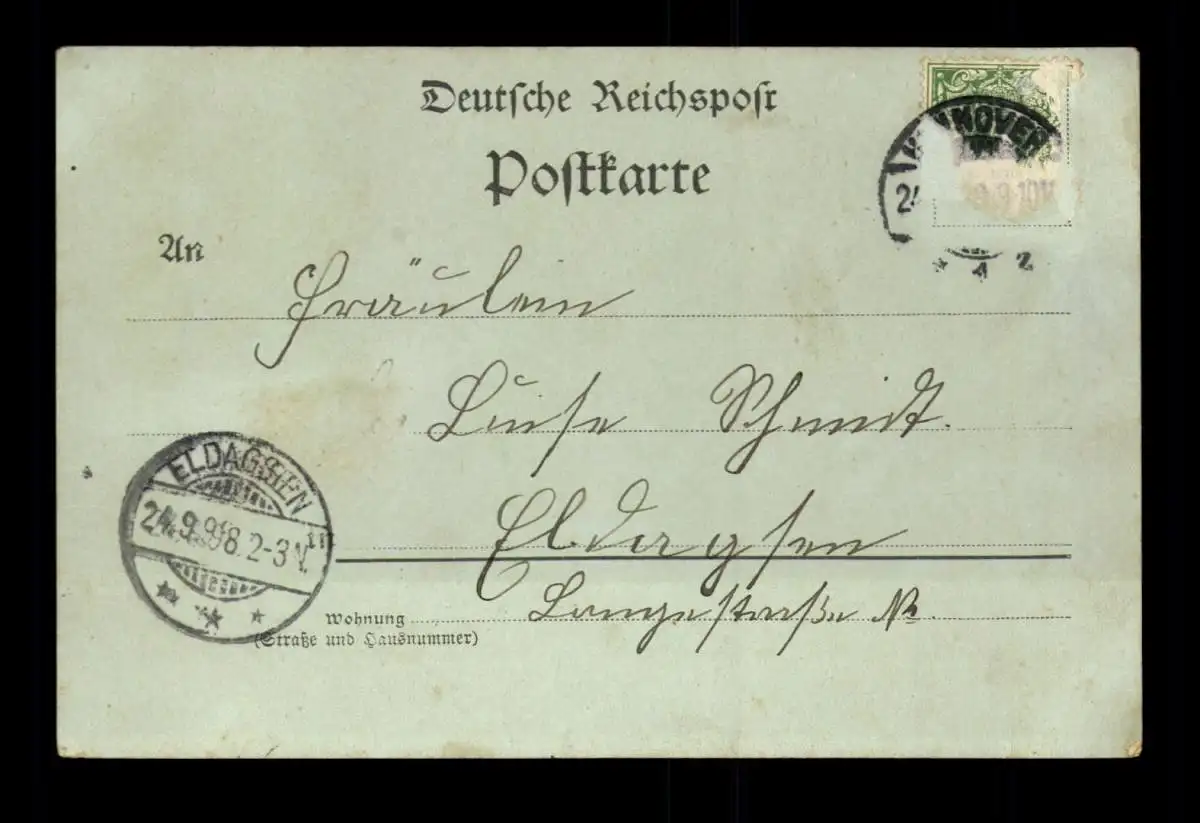 Deutsche Reichspost
Postkarte
HANNOVER
24 9.9.10V.
* 1 z
An Fräulein
Luise Schmidt.
Eldagsen
Wohnung Langestraße Nr.
(Straße und Hausnummer)
ELDAGSEN
24.9.98.2-3N.